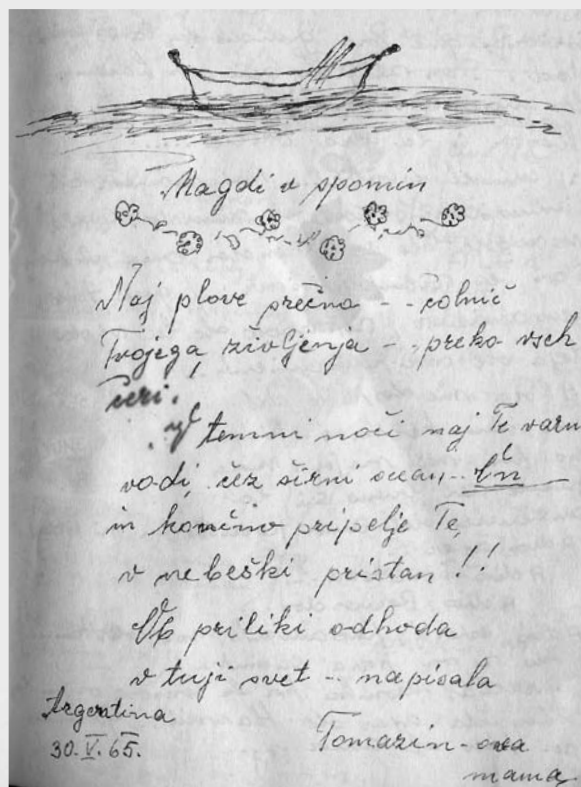 Magdi v spomin
Naj plove srečno -- čolnič
Tvojega življenja -- preko vseh
čeri.
temni noči naj Te varno
vodi, čez širni ocean --
in končno pripelje Te,
v nebeški pristan!!
Ob priliki odhoda
v tuji svet -- napisala
Argentina
30. V. 65.
Tomazin-ova
mama